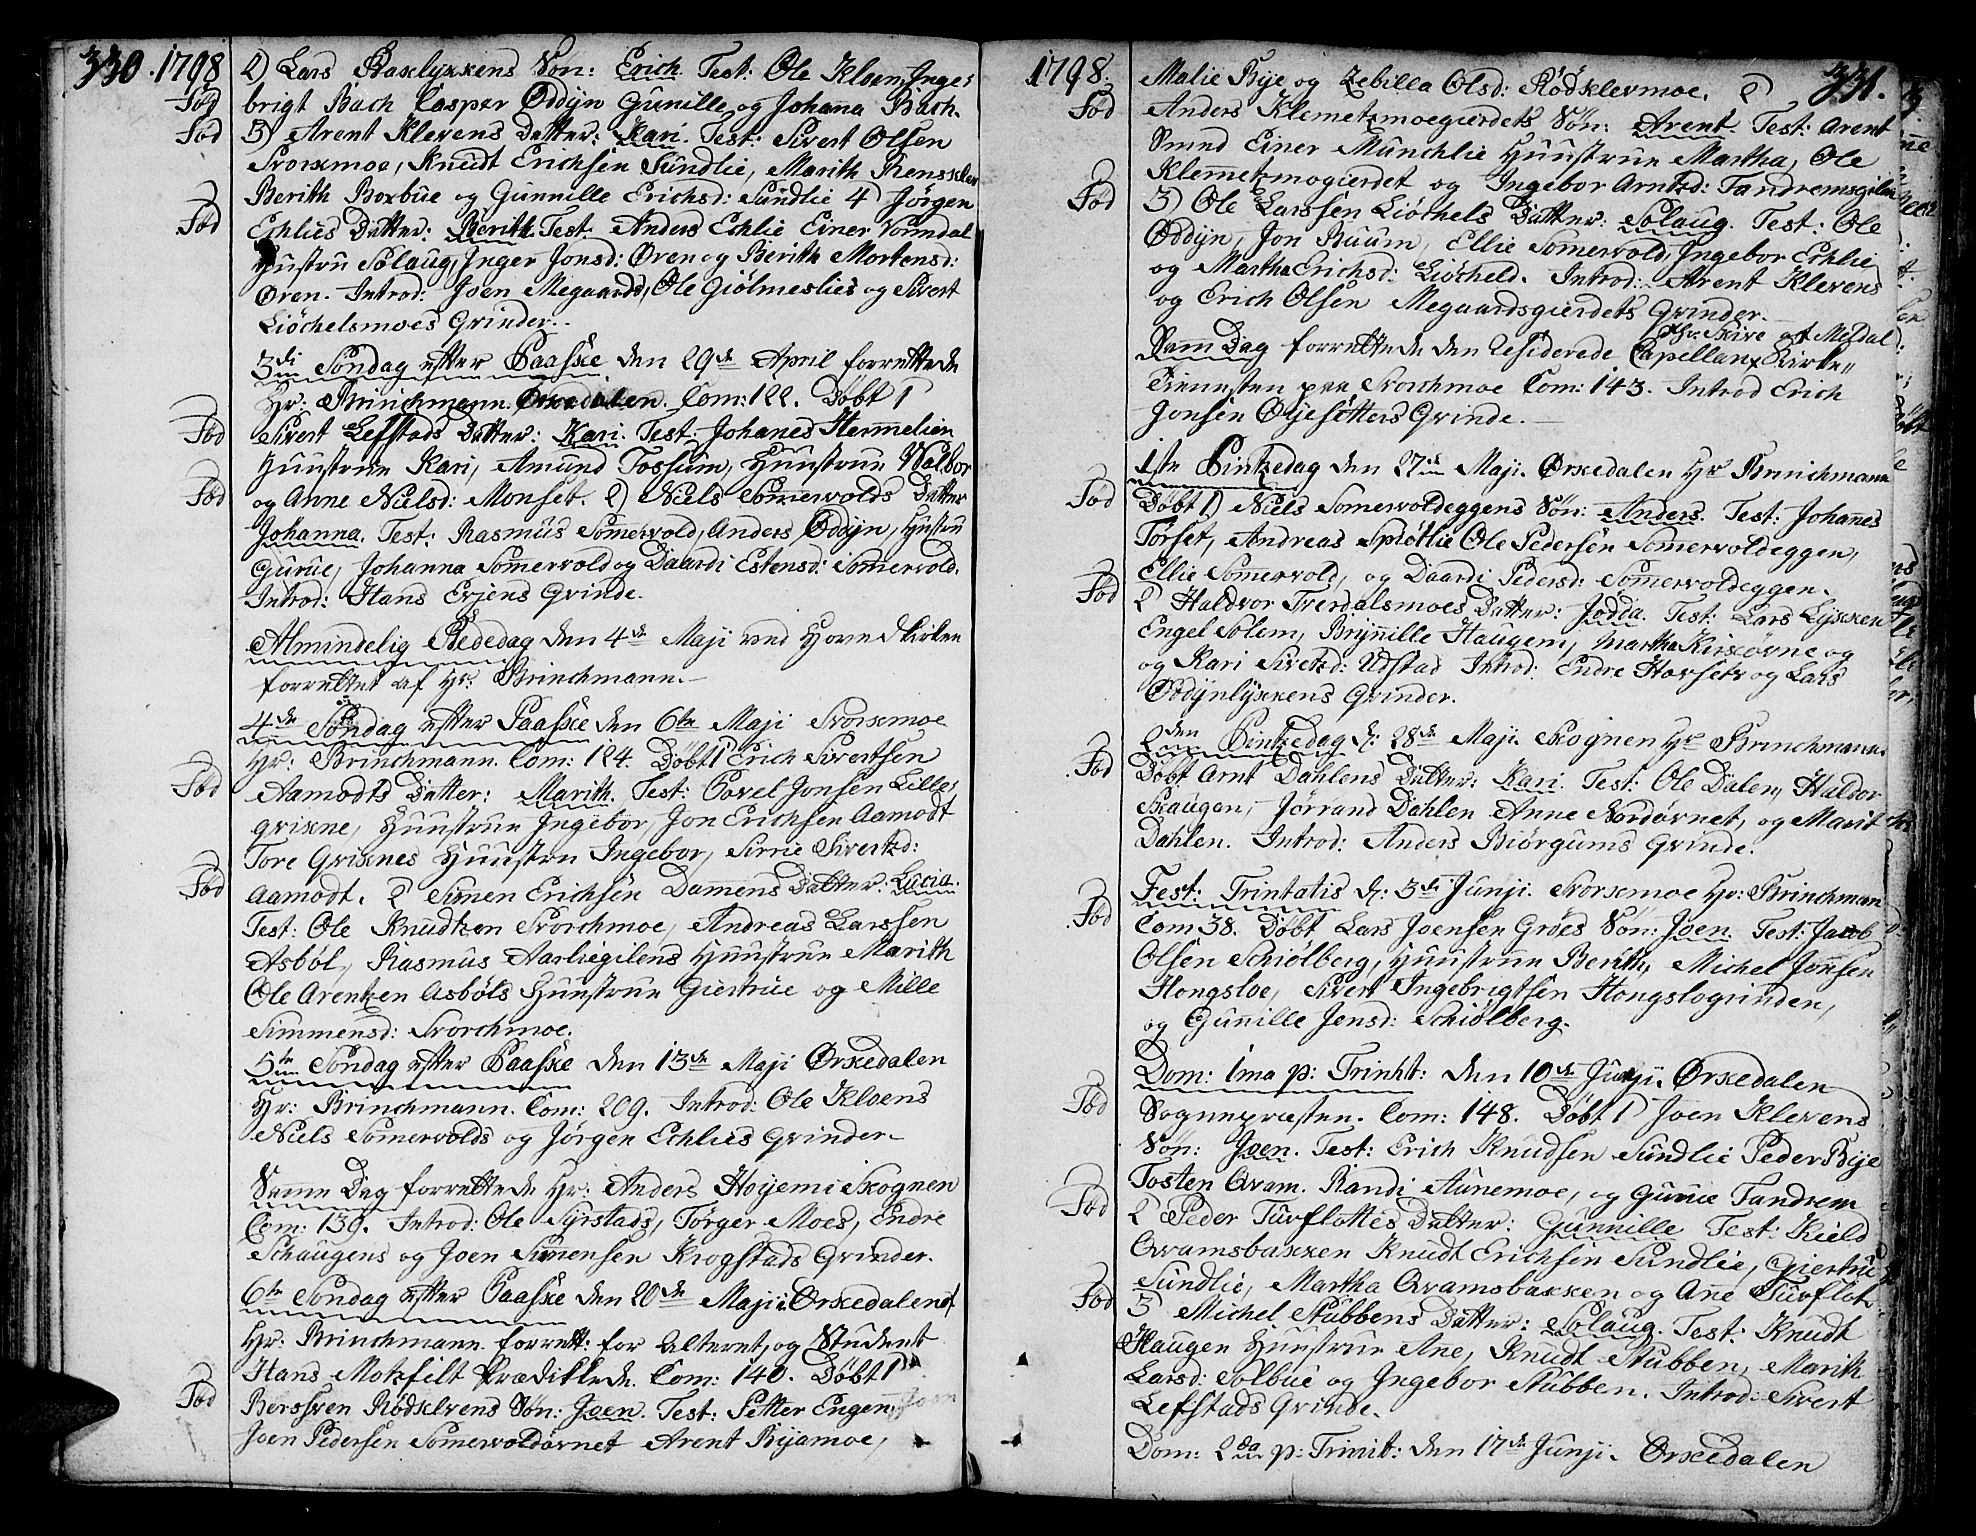 330. 1798
2) Lars Baklykkens Søn: Erich. Test: Ole Kloen, Inge-
Fød
brigt Bach Casper Oddyn Gunille og Johana Bach.
Fød
3) Arent Klevens Datter: Kari. Test: Sivert Olsen
Svorkmoe, Knudt Erichsen Sundlie, Marith
Berith Boxbue og Gunnille Erichsd: Sundlie 4) Jørgen
Fød
Echlies Datter: Berith. Test: Anders Echlie Einer
Hustru Solaug, Inger Jonsd: Øren og Berith Mortensd:
Øren. Introd: Joen Megaards, Ole Giølmeslies og Sivert
Liøchelsmoes Grinder.
3di Søndag efter Paaske den 29de April forrettede
Hr: Brinchmann Ørkedalen. Com: 122. Døbt 1)
Fød
Sivert Lefstads Datter: Kari. Test: Johanes Hermelien
Huustrue Kari, Amund Fossum, Huustrue Walbor
Fød
og Anne Nielsd: Monset. 2) Niels Somervolds Datter
Johanna. Test: Rasmus Somervold, Anders Oddyn, Hustru
Gurue, Johanna Somervold og Daardi Estensd: Somervold.
Introd: Hans Evjens Grinde.
Almindelig Bededag den 4de Maji ved Hovedkirken
forrettet af Hr: Brinchmann.
4de Søndag efter Paaske den 6te Maji Svorkmoe
Hr: Brinchmann. Com: 124. Døbt 1) Erich Sivertsen
Fød
Aamodts Datter: Marith. Test: Povel Jonsen Lille-
grikne, Huustrue Ingebor, Jon Erichsen Aamodt
Tore Griknes Huustru Ingebor, Sirrie Sivertsd:
Fød
Aamodt. 2) Simen Erichsen Dammens Datter: Lucia.
Test: Ole Knudtzen Svorchmoe, Andreas Larssen
Asbøl, Rasmus Aarliegilens Huustrue Marith
Ole Arentzen Asbøls Huustrue Giertrue og Mille
Simmensd: Svorchmoe.
5te Søndag efter Paaske den 13de Maji Ørkedalen
Hr: Brinchmann. Com: 209. Introd: Ole Kloens
Niels Somervolds og Jørgen Echlies Grinder.
Samme Dag forrettede Hr: Anders Hoijem i Skognen
Com: 130. Introd: Ole Syrstads, Tørger Moes, Endre
Schaugens og Joen Simensen Krogstads Grinder.
6te Søndag efter Paaske den 20de Maji: Ørkedalen
Hr: Brinchmann forrett: for Alteret, og Student
Hans Motzfilt Prædikkede. Com: 140. Døbt 1)
Fød
Berssven Rødklevens Søn: Joen. Test: Petter Engen,
Joen Pedersen Somervoldørnet Arent Bijamoe,
1798. 331.
Malie Bye og Zebilla Olsd: Rødklevmoe. 2)
Fød
Anders Klemetzmoegierdets Søn: Arent. Test: Arent
Smed Einer Munchlie Huustrue Martha, Ole
Klemetzmogierdet og Ingebor Arntsd:
Fød
3) Ole Larssen Liøchels Datter: Solaug. Test: Ole
Oddyn, Jon Buum, Ellie Somervold, Ingebor Echlie
og Martha Erichsd: Liøcheld. Introd: Arent Klevens
og Erich Olsen Megaardsgierdets Grinder.
Sam Dag forrettede den Residerede Capellan Hr: Skive af Meldal Kirke-
Tienesten paa Svorchmoe Com: 143. Introd Erich
Jonsen Øyesetters Grinde.
1ste Pintzedag den 27de Maji. Ørkedalen Hr Brinchmann
Fød
Døbt 1) Niels Somervoldeggens Søn: Anders. Test: Johannes
Torset, Andreas Spiøtlie Ole Pedersen Somervoldeggen,
Ellie Somervold, og Daardi Pedersd: Somervoldeggen.
Fød
2 Haldvor Trerdalsmoes Datter: Jødda. Test: Lars Lykken
Engel Solem, Brynnille Haugem, Martha Kirkørne og
og Kari Sivertsd: Udstad Introd: Endre Horsets og Lars
Oddynlykkens Grinder.
2den Pintzedag d: 28de Maji. Skognen Hr Brinchmann.
Fød
Døbt Arnt Dahlens Datter: Kari. Test: Ole Dalen, Haldor
Skaugan, Jørrand Dahlen Anne Nordørnet, og Marit
Dahlen. Introd: Anders Biørgums Grinde.
Fest: Trintatis d: 3die Junji. Svorkmoe Hr: Brinchman
Fød
Com 38. Døbt Lars Joensen Groes Søn: Joen. Test: Jacob
Olsen Schiølberg, Huustrue Berith, Michel Jonsen
Hongsloe, Sivert Ingebrigtsen Hongslogrinden,
og Gunnille Jensd: Schiølberg.
Dom: 1ma p: Trinit: den 10de Junji. Ørkedalen
Fød
Sognepræsten. Com: 148. Døbt 1) Joen Klevens
Søn: Joen. Test: Erich Knudsen Sundlie Peder Bye
Tosten Qvam. Randi Aunemoe, og Gurue Tandrem
Fød
2 Peder Turflottes Datter: Gunnille Test: Kield
Qvamsbakken Knudt Erichsen Sundlie, Giertrue
Sundlie, Martha Qvamsbakken og Ane Turflot
Fød
3 Michel Stubbens Datter: Solaug. Test: Knudt
Haugen Huustrue Ane, Knudt Stubben, Marith
Larsd: Solbue og Ingebor Stubben. Introd: Sivert
Lefstads Grinde.
Dom: 2da p: Trinit: den 17de Junji. Ørkedalen